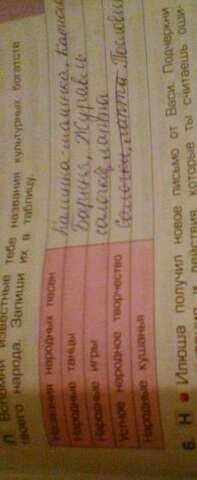 Вспомни известные тебе названия культурных богатств
твоего народа. Запиши их в таблицу.
Названия народных песен Калина-малина,
Народные танцы Барыня, Журавль
Народные игры салочки, лапта
Устное народное творчество
Народные кушанья
6 Н Илюша получил новое письмо от Васи. Подчеркни
действия, которые ты считаешь оши-